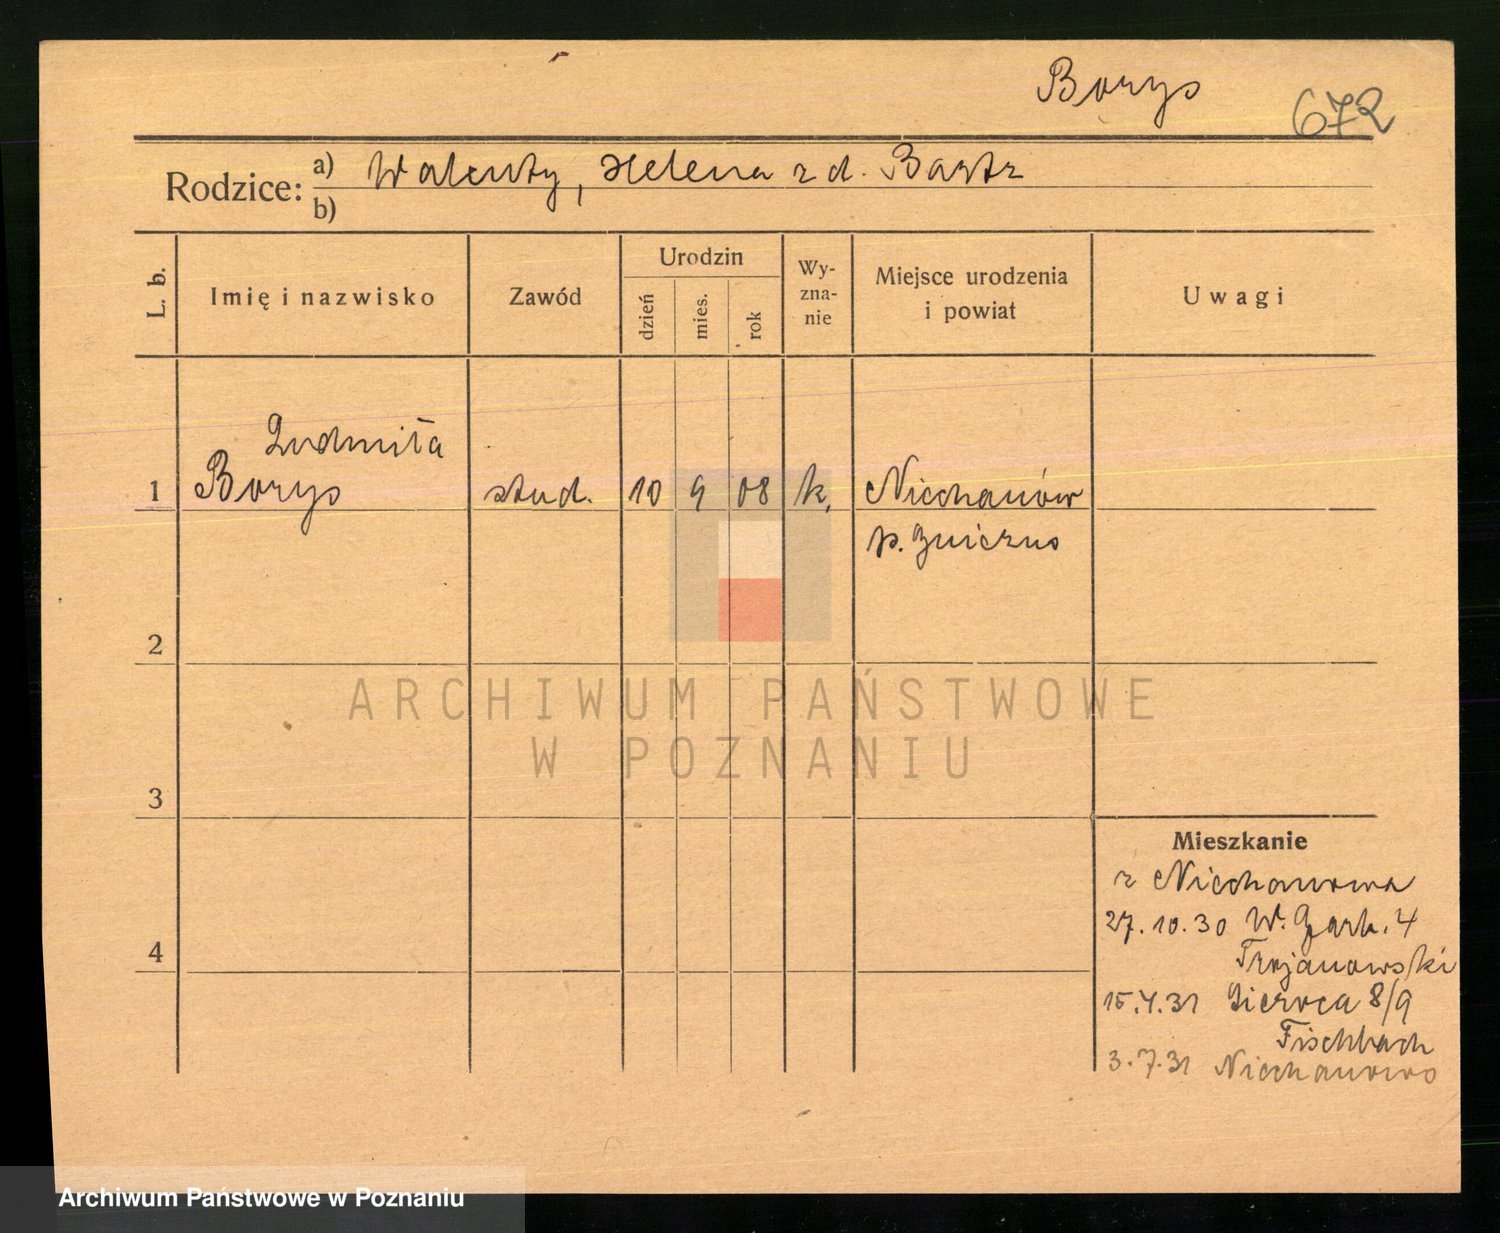 Borys
672
Rodzice: a) Walenty, Helena z d. Bartz
b)
L. b. Imię i nazwisko Zawód Urodzin dzień mies. rok Wy-zna-nie Miejsce urodzenia i powiat Uwagi
Ludmiła
1 Borys stud. 10 9 08 k. Niechanów
p. Gniezno
2
ARCHIWUM PAŃSTWOWE
W POZNANIU
3
Mieszkanie
z Niechanowa
27.10.30 W. Garb. 4
4
Trojanowski
15.4.31 Zieroca 8/9
Fischbach
3.7.31 Niechanowo
Archiwum Państwowe w Poznaniu